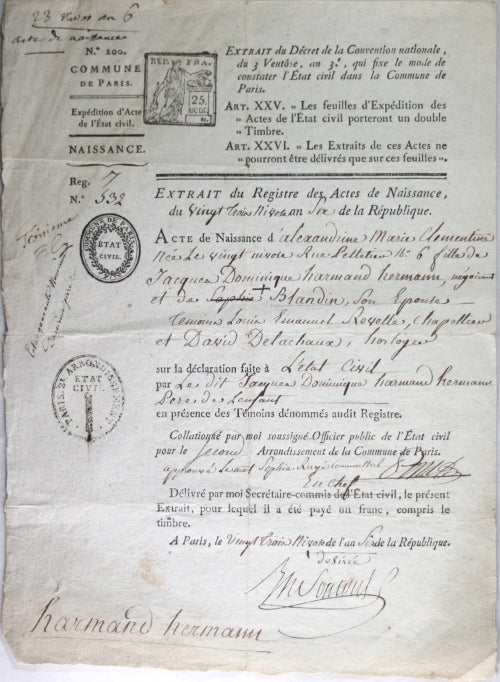 23 Nivos an 6
acte de naissance
N.º 200.
COMMUNE
DE PARIS.
Expédition d'Acte
de l'État civil.
NAISSANCE.
Reg. 7
N.º 532
RÉP. FRA.
25
CENT.
EXTRAIT du Décret de la Convention nationale,
du 3 Ventôse, an 3.e, qui fixe le mode de
constater l'État civil dans la Commune de
Paris.
ART. XXV. « Les feuilles d'Expédition des
» Actes de l'État civil porteront un double
» Timbre.
ART. XXVI. « Les Extraits de ces Actes ne
» pourront être délivrés que sur ces feuilles ».
EXTRAIT du Registre des Actes de Naissance,
du Vingt Trois Nivose an Six de la République.
COMMUNE DE PARIS
ÉTAT
CIVIL.
ACTE de Naissance d'alexandrine Marie Clementine
née Le vingt nivose Rue Pelletier N.º 6 fille de
Jacques Dominique harmand hermann, négociant
et de Sophie Blandin, Son Epouse
Temoins Louis Emanuel Revelle, Chapellier
et David Delachaux, horloger
sur la déclaration faite à L'état Civil
par Le dit Jacques Dominique harmand hermann
Pere de Lenfant
en présence des Témoins dénommés audit Registre.
PARIS. 2e ARRONDISSEMENT
ETAT
CIVIL
Collationné par moi soussigné Officier public de l'État civil
pour le Second Arrondissement de la Commune de Paris.
approuvé Le mot Sophie Rayé
En Chef
Délivré par moi Secrétaire-commis de l'État civil, le présent
Extrait, pour lequel il a été payé un franc, compris le
timbre.
A Paris, le Vingt Trois Nivose de l'an Six de la République.
harmand hermann